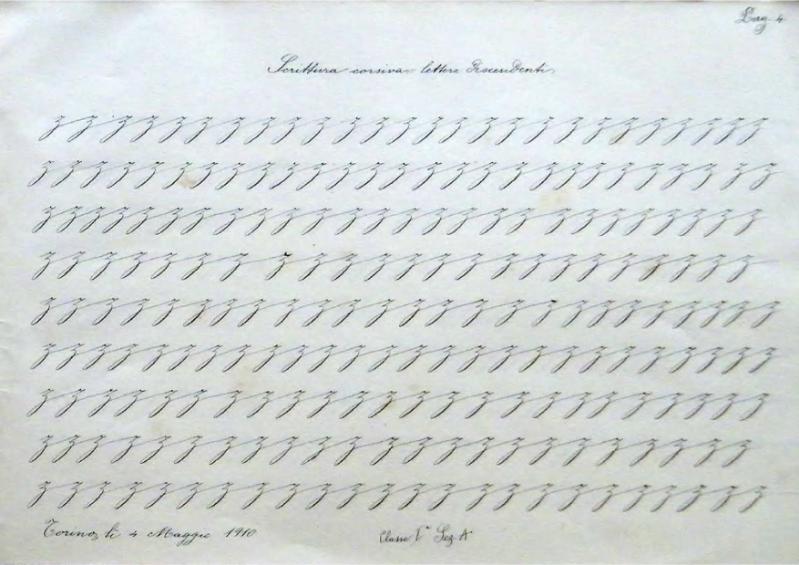 Pag. 4
Scrittura corsiva lettere Discendenti
z z z z z z z z z z z z z z z z z z z z z z z z z z z
z z z z z z z z z z z z z z z z z z z z z z z z z z z
z z z z z z z z z z z z z z z z z z z z z z z z z z z
z z z z z z z z z z z z z z z z z z z z z z z z z z
z z z z z z z z z z z z z z z z z z z z z z z z z z
z z z z z z z z z z z z z z z z z z z z z z z z z z z
z z z z z z z z z z z z z z z z z z z z z z z z z z z
z z z z z z z z z z z z z z z z z z z z z z z z z
z z z z z z z z z z z z z z z z z z z z z z z z z z
Torino, li 4 Maggio 1910
Classe Iª Sez. A